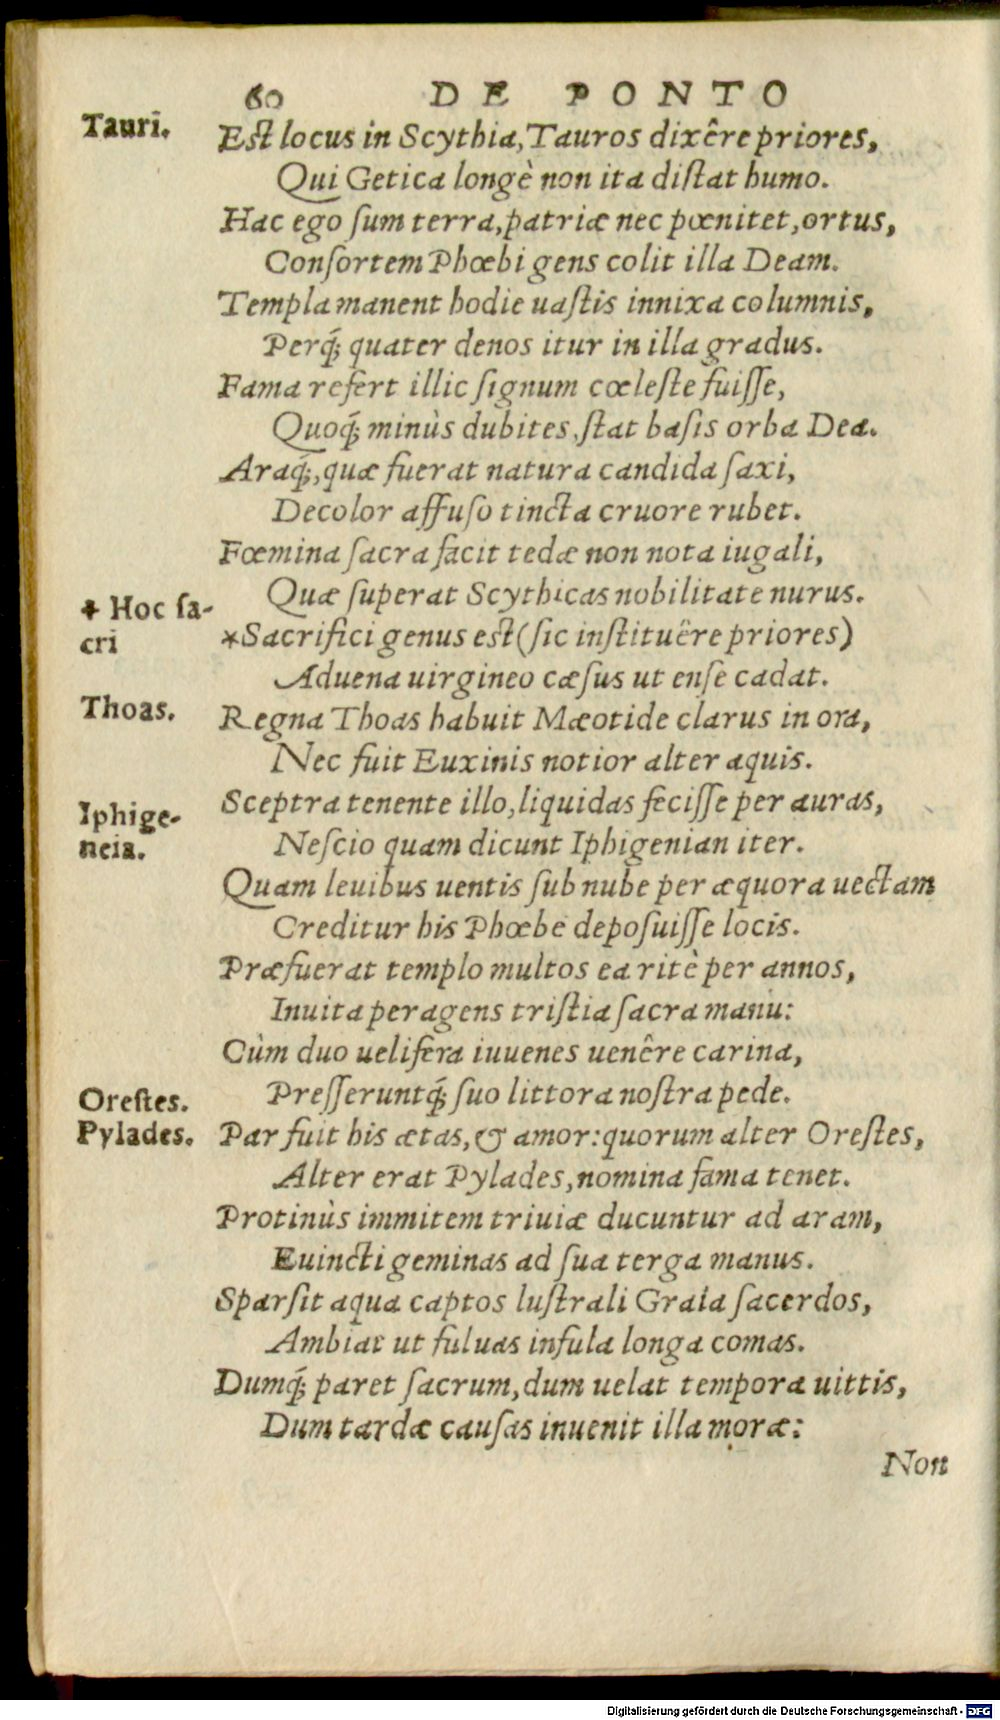 60 DE PONTO
Tauri.
Est locus in Scythia, Tauros dixêre priores,
Qui Getica longè non ita distat humo.
Hac ego ſum terra, patriæ nec pœnitet, ortus,
Conſortem Phœbi gens colit illa Deam.
Templa manent hodie uaſtis innixa columnis,
Perq́; quater denos itur in illa gradus.
Fama refert illic ſignum cœleſte fuiſſe,
Quoq́; minùs dubites, ſtat baſis orba Dea.
Araq́;, quæ fuerat natura candida ſaxi,
Decolor affuſo tincta cruore rubet.
Fœmina ſacra facit tedæ non nota iugali,
Quæ ſuperat Scythicas nobilitate nurus.
* Hoc ſa-
cri
*Sacrifici genus eſt (ſic inſtituêre priores)
Aduena uirgineo cæſus ut enſe cadat.
Thoas.
Regna Thoas habuit Mæotide clarus in ora,
Nec fuit Euxinis notior alter aquis.
Sceptra tenente illo, liquidas feciſſe per auras,
Neſcio quam dicunt Iphigenian iter.
Iphige-
neia.
Quam leuibus uentis ſub nube per æquora uectam
Creditur his Phœbe depoſuiſſe locis.
Præfuerat templo multos ea ritè per annos,
Inuita peragens triſtia ſacra manu:
Cùm duo uelifera iuuenes uenêre carina,
Preſſeruntq́; ſuo littora noſtra pede.
Oreſtes.
Pylades.
Par fuit his ætas, & amor: quorum alter Oreſtes,
Alter erat Pylades, nomina fama tenet.
Protinùs immitem triuiæ ducuntur ad aram,
Euincti geminas ad ſua terga manus.
Sparſit aqua captos luſtrali Graia ſacerdos,
Ambiat ut fuluas infula longa comas.
Dumq́; paret ſacrum, dum uelat tempora uittis,
Dum tardæ cauſas inuenit illa moræ:
Non
Digitalisierung gefördert durch die Deutsche Forschungsgemeinschaft - DFG